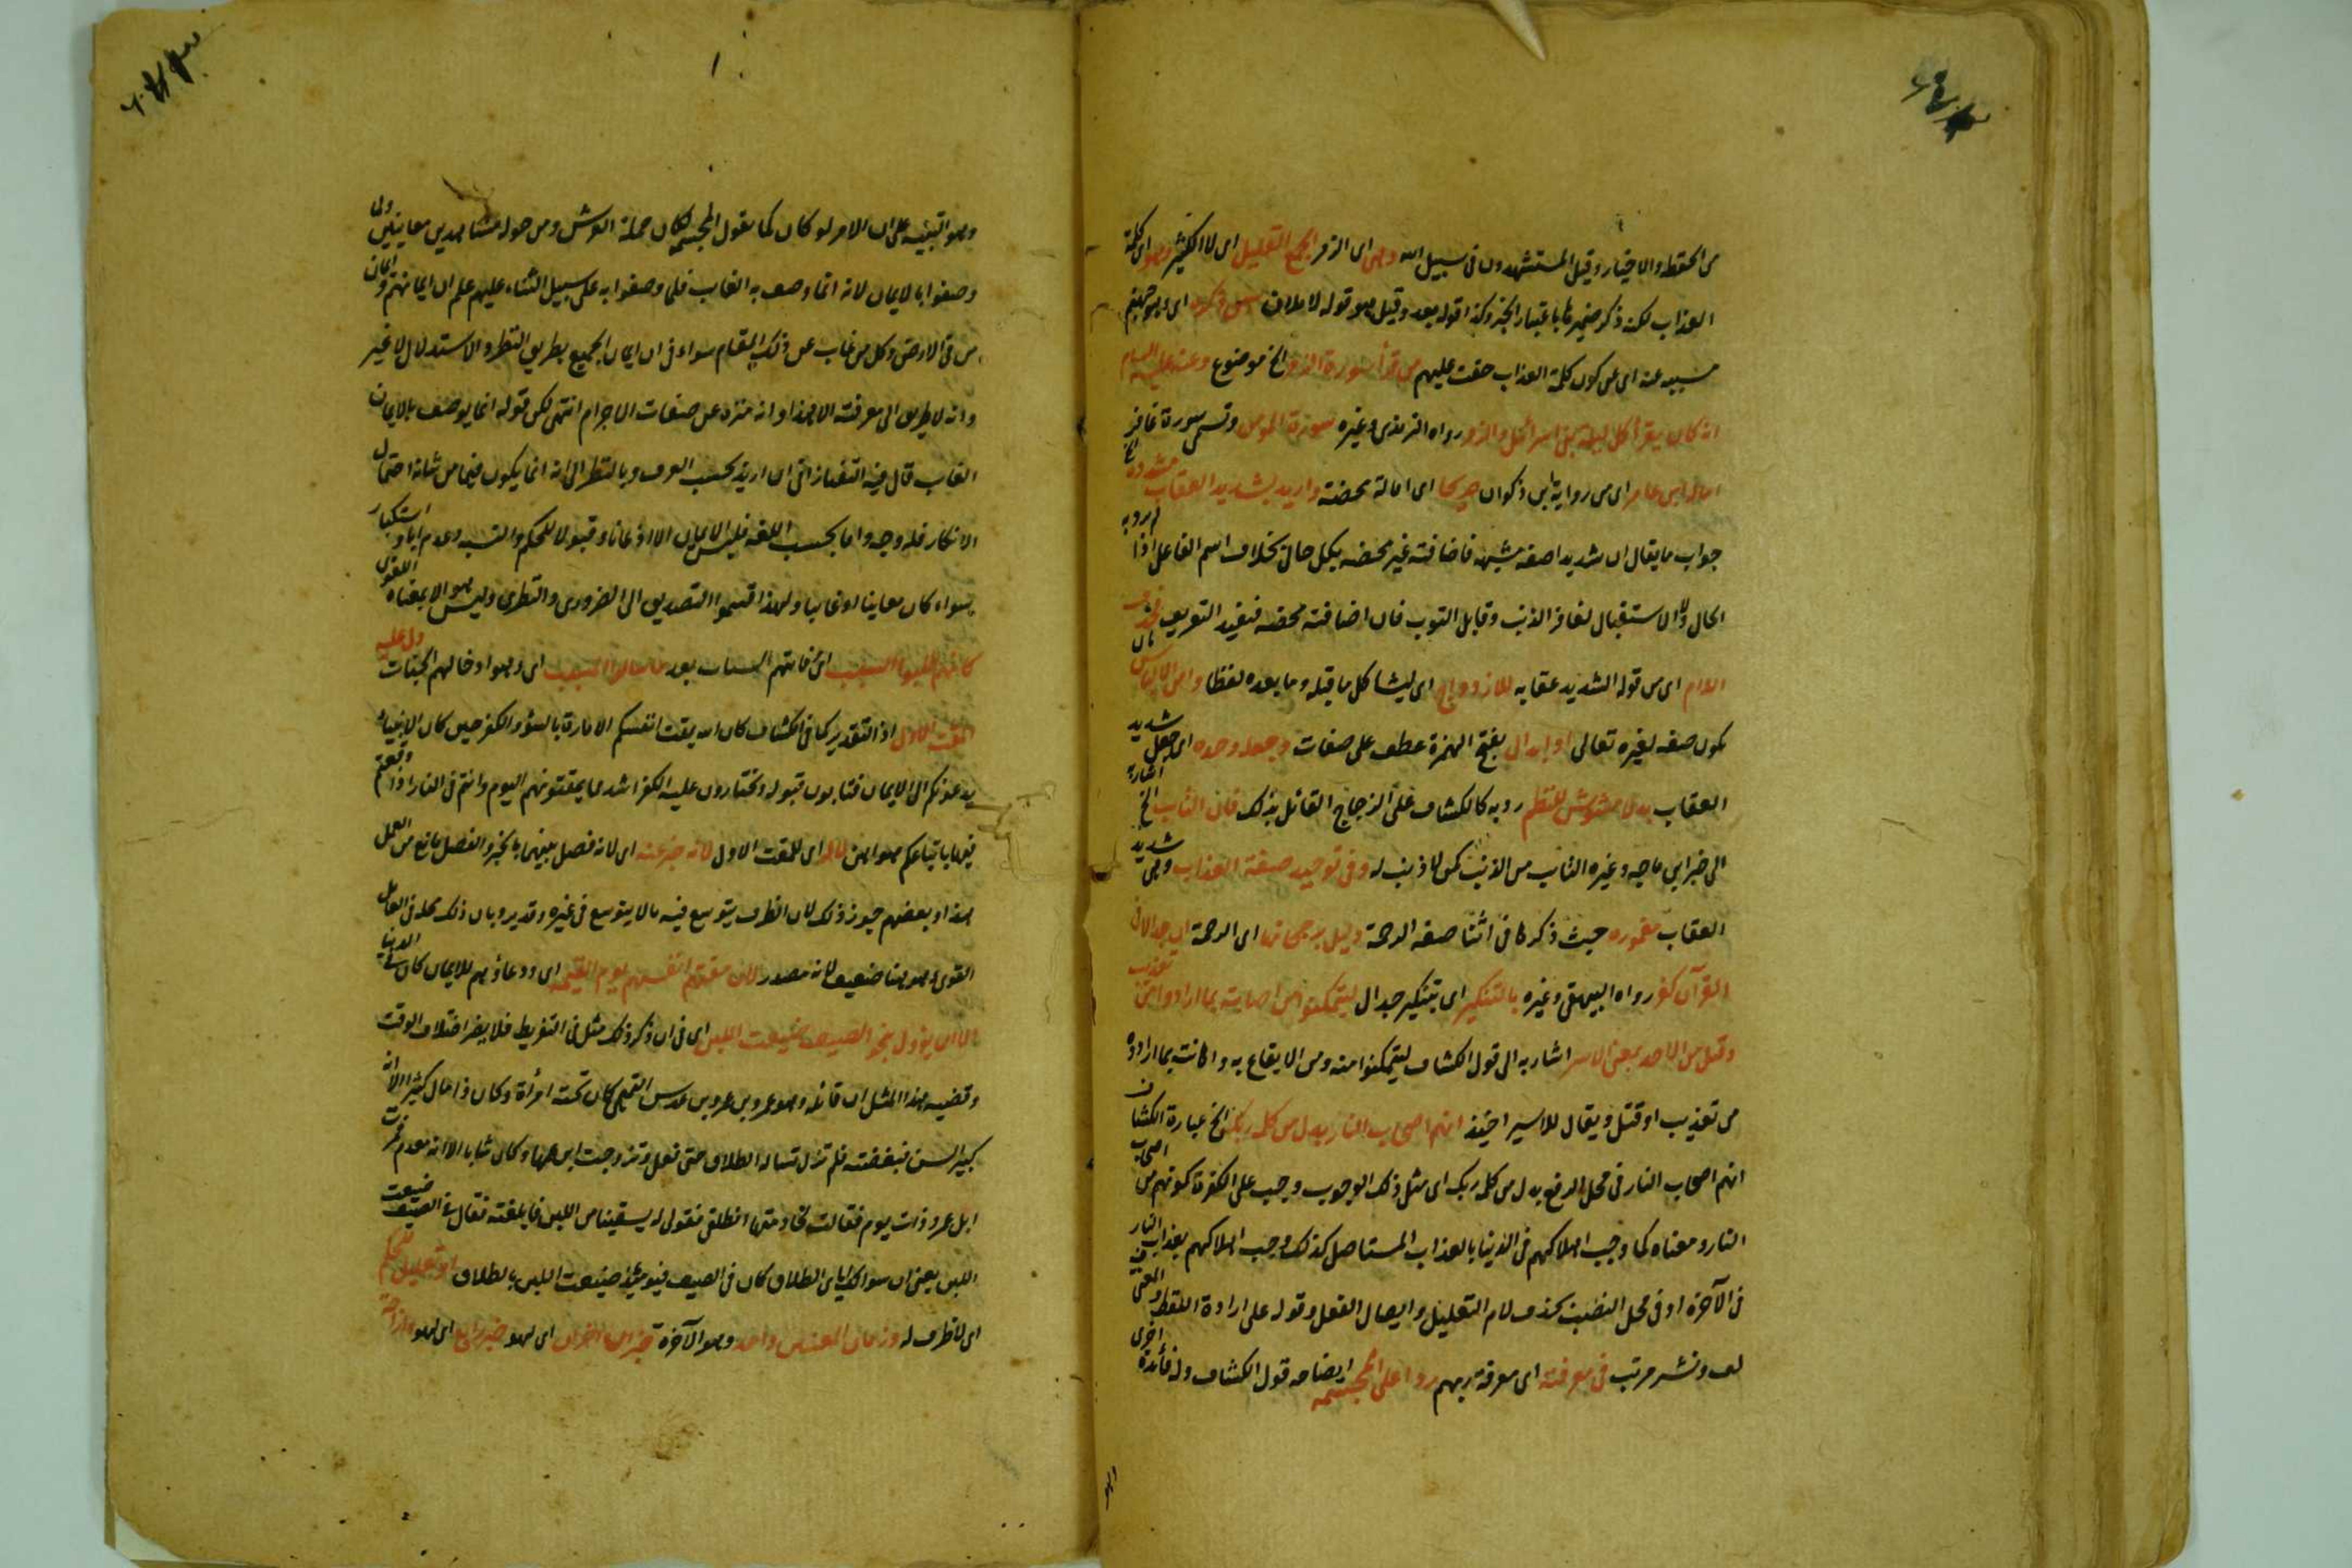 من الحفظة والاخيار وقيل المستشهدون فى سبيل الله وهى اى الزمر الجمع القليل اى لا الكثير وهو اى كلمة
العذاب لكنه ذكر ضميرها باعتبار الخبر وكذا قوله بعد وقيل هو قوله لاملان اى وهو جهنم
مسببه عنه اى عن كون كلمة العذاب حقت عليهم من قرأ سورة الزمر الخ موضوع وعنه عليه السلام
انه كان يقرأ كل ليلة بنى اسرائيل والزمر رواه الترمذى وغيره سورة المومن وتسمى سورة غافر
اماله ابن عامر اى من رواية ابن ذكوان صريحا اى امالة محضة واريد بشديد العقاب مشدده
جواب ما يقال ان شديدا صفة مشبهة فاضافته غير محضه بكل حال بخلاف اسم الفاعل اذا لم يرد به
الحال ولا الاستقبال لغافر الذنب وقابل التوب فان اضافته محضه فيفيد التعريف
اللام اى من قوله الشديد عقابه للازدواج اى ليشاكل ما قبله وما بعده لفظا وامن الالباس
يكون صفه لغيره تعالى او ابدال بفتح الهمزة عطف على صفات وجعله وحده اى جعل شديد
العقاب بدلا مشوش للنظم رد به كالكشاف على الزجاج القائل بذلك فان التائب الخ اشارة
الى خبر ابن ماجه وغيره التائب من الذنب كمن لا ذنب له وفى توحيد صفة العذاب وهى شديد
العقاب مغموره حيث ذكرها فى اثنا صفه الرحمة دليل رجحانها اى الرحمة ان جدالا فى
القرآن كفر رواه البيهقى وغيره بالتنكير اى بتنكير جدال ليتمكنوا من اصابته بما ارادوا من تعذيب
وقيل من الاخذ بمعنى الاسر اشار به الى قول الكشاف ليتمكنوا منه ومن الايقاع به واصابته بما ارادوه
من تعذيب او قتل ويقال للاسير اخيذ انهم اصحاب النار بدل من كلمة ربك الخ عبارة الكشاف
انهم اصحاب النار فى محل الرفع بدل من كلمة ربك اى مثل ذلك الوجوب وجب على الكفرة كونهم من اصحاب
النار ومعناه كما وجب اهلاكهم فى الدنيا بالعذاب المستاصل كذلك وجب اهلاكهم بعذاب النار
فى الآخرة او فى محل النصب بحذف لام التعليل وايصال الفعل وقوله على ارادة اللفظ والمعنى
لف ونشر مرتب فى معرفته اى معرفة ربهم ردا على المجسمه ايضاحه قول الكشاف وله فائدة اخرى
وهو التنبيه على ان الامر لو كان كما يقول المجسمه لكان حملة العرش ومن حوله مشاهدين معاينين ولما
وصفوا بالايمان لانه انما وصف به الغائب فلما وصفوا به على سبيل الثناء عليهم علم ان ايمانهم وايمان
من فى الارض وكل من غاب عن ذلك المقام سواء فى ان ايمان الجميع بطريق النظر والاستدلال لا غير
وانه لا طريق الى معرفته الا هذا وانه منزه عن صفات الاجرام انتهى لكن قوله انما يوصف بالايمان
الغايب قال فيه التفتازانى ان اريد بحسب العرف وبالنظر الى انه انما يكون فيما من شانه احتمال
الانكار فله وجه واما بحسب اللغه فليس الايمان الا اذعانا وقبولا للحكم والنسب وعدم اباء واستكبار
سواء كان معاينا او غايبا ولهذا قسموا التصديق الى الضرورى والنظرى وليس هو الا بمعناه اللغوى
اذ التقدير كما فى الكشاف كان الله يمقت انفسكم الامارة بالسوء والكفر حين كان الانبياء
يدعونكم الى الايمان فتابون قبوله وتختارون عليه الكفر اشد مما يمقتونهم اليوم وانتم فى النار اذا وقعتم
فيها باتباعكم هواهن اى للمقت الاول لانه خبر عنه اى لانه فصل بينهما بالخبر والفصل مانع من العمل
هذا وبعضهم جوز ذلك لان الظرف يتوسع فيه ما لا يتوسع فى غيره وقد يرد بان ذلك محله فى العامل
القوى وهو هنا ضعيف لانه مصدر لان مقتهم انفسهم يوم القيمه اى ودعاؤهم للايمان كان فى الدنيا
الا ان يؤول بنحو الصيف ضيعت اللبن اى فى ان ذكر ذلك مثل فى التفريط فلا يضر اختلاف الوقت
وقضيه هذا المثل ان قائله وهو عمرو بن عمرو بن عدس التميمى كان تحته امرأة وكان ذا مال كثير الا انه
كبير السن فبغضته فلم تزل تساله الطلاق حتى فعل وتزوجت ابن عمها وكان شابا الا انه معدم فمرت
ابل عمرو ذات يوم فقالت لخادمتها انطلقى فقولى له يسقينا من اللبن فابلغته فقال فى الصيف ضيعت
اللبن يعنى ان سوالك اياى الطلاق كان فى الصيف فيومئذ ضيعت اللبن بالطلاق او تعليل للحكم
اى لا ظرف له وزمان المقتين واحد وهو الآخرة خبران اخران اى لهو